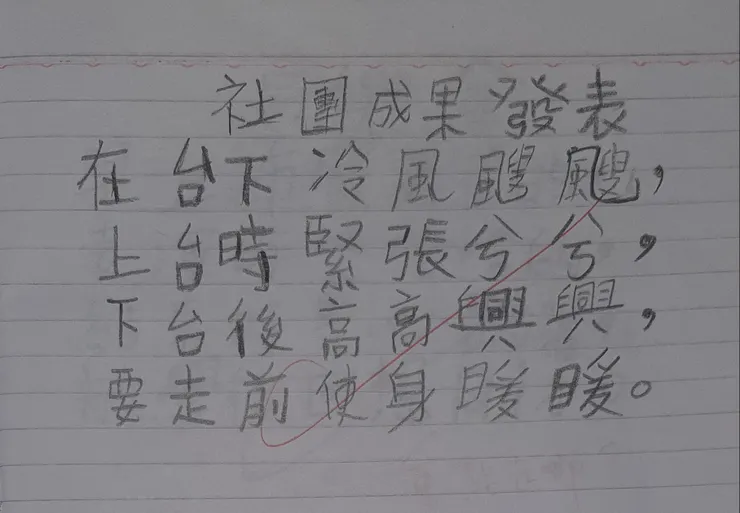 社團成果發表
在台下冷風颼颼，
上台時緊張兮兮，
下台後高高興興，
要走前使身暖暖。